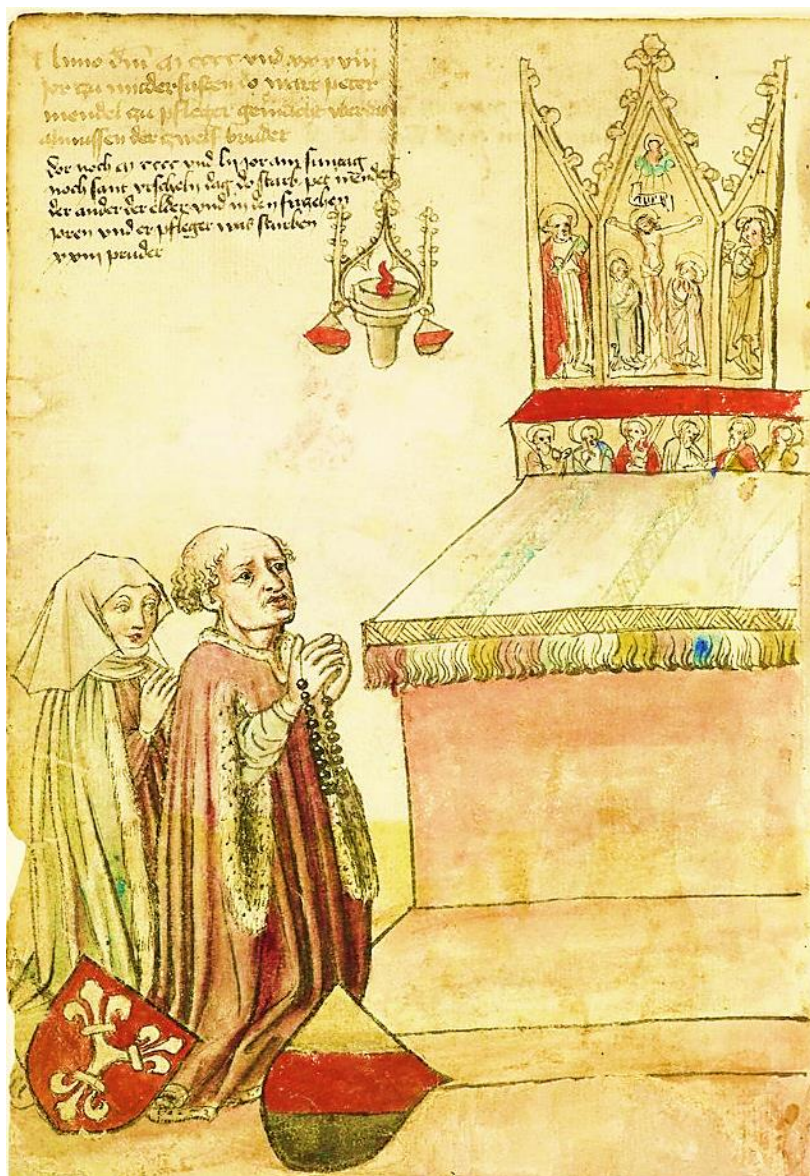 Anno dm m cccc vnd xxxviii
jor zu mitderfasten do wart peter
mendel zu pfleger gemacht
almussen der zwelf bruder
Dor noch m cccc vnd lii jor am suntag
noch sant vrscheln dag do starb pet mendel
der ander der elder vnd in den
joren vnd er pfleger was sturben
xxiii pruder